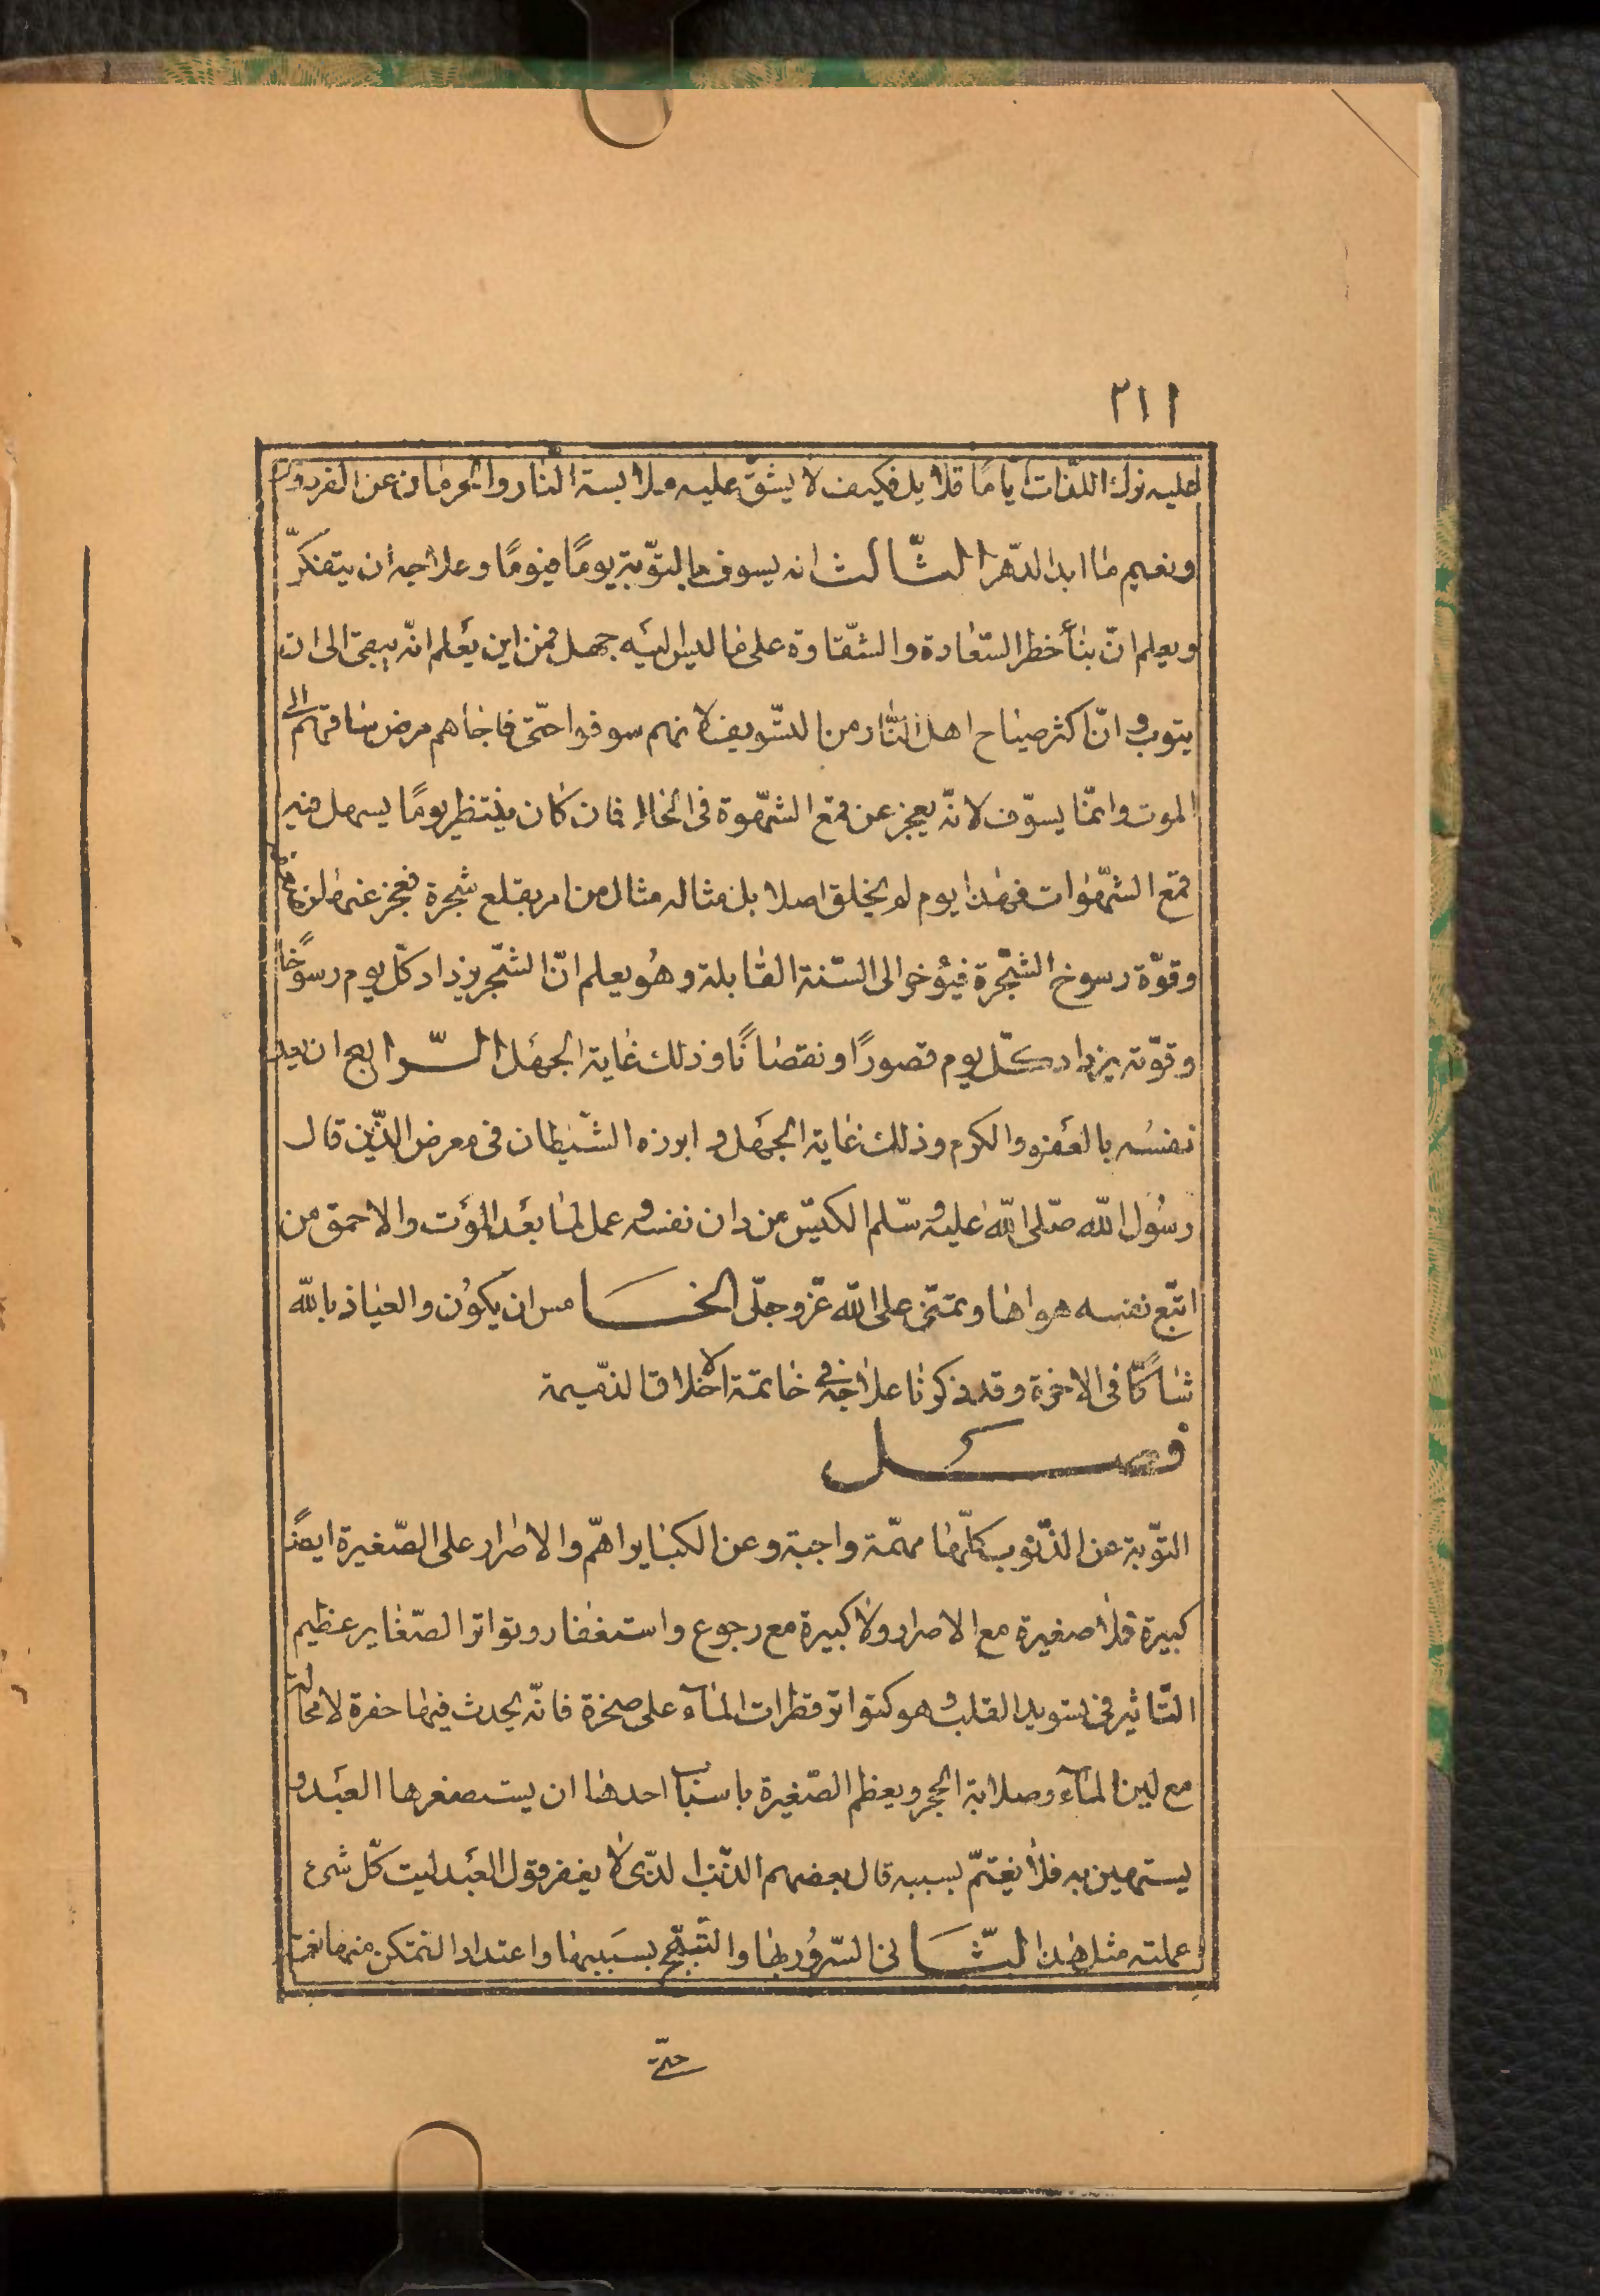 ٢١١
عليه ترك اللّذات ايّامًا قلايل فكيف لا يشقّ عليه ملابسة النار والحرمان عن الفردوس
ونعيمها ابد الدّهر الثّالث انه يسوف بالتّوبة يومًا فيومًا وعلاجه ان يتفكرّ
ويعلم انّ بناء خطر السّعادة والشّقاوة على ما ليس اليَه جهل فمن اين يعَلم انّه يبقى الى ان
يتوب وانّ اكثر صياح اهل النّار من التسّويف لانهم سوفوا حتّى فاجاهم مرض ساقهم الى
الموت وانمّا يسوّف لانّه يعجز عن قمع الشّهوة فى الحال فان كان ينتظر يومًا يسهل فيه
قمع الشّهوات فهذا يوم لم يخلق اصلا بل مثاله مثال من امر بقلع شجرة فعجز عنها لضعفه
وقوّة رسوخ الشّجرة فيؤُخر الى السّنة القابلة وهُو يعلم انّ الشّجر يزداد كلّ يوم رسوخًا
وقوّته يزداد كلّ يوم قصورًا ونقصانًا وذلك غاية الجهَل الرّابع ان يعد
نفسُه بالعَفو والكرم وذلك غاية الجهَل وابرزه الشّيطان فى معرض الدّين قال
رسُول اللّه صّلى اللّه عليه وسّلم الكيّس من دان نفسه وعمل لما بعَد الموَت والاحمق من
اتبّع نفسه هواها وتمنّى على اللّه عزّ وجلّ الخامس ان يكوُن والعياذ باللّه
شاكًّا فى الاخرة وقد ذكرنا علاجه فى خاتمة الاخلاق الذّميمة
فصل
التوّبة عن الذّنوب كلّها مهمّة واجبة وعن الكباير اهمّ والاصرار على الصّغيرة ايضًا
كبيرة فلا صغيرة مع الاصرار ولا كبيرة مع رجوع واستغفار وتواتر الصّغاير عظيم
التّاثير فى تسويد القلب وهو كتواتر قطرات الماَء على صخرة فانّه يحدث فيها حفرة لا محالة
مع لين الماَء وصلابة الحجر ويعظم الصّغيرة باسباب احدها ان يستصغرها العبَد و
يستهين به فلا يغتمّ بسببه قال بعضهم الذّنب الذّى لا يغفر قول العبَد ليت كلّ شىء
عملته مثل هذا الثّانى السّروُر بها والتّبجّح بسَببها واعتداد التمّكن منها نعمة
حتّى